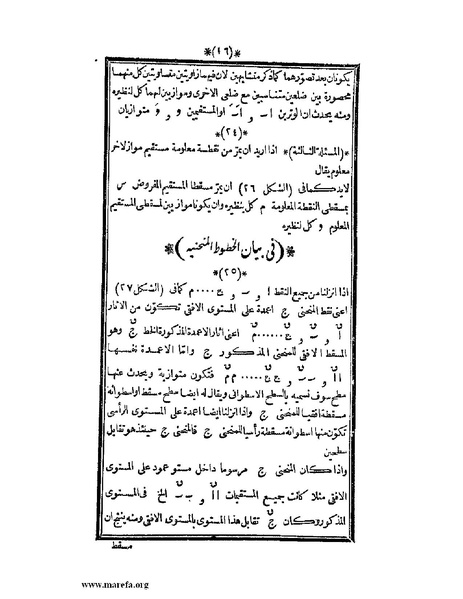 *(١٦)*
يكونان بعد تصورهما كما ذكر متشابهين لان فيهما زاويتين متساويتين كل منهما
محصورة بين ضلعين متناسبين مع ضلعى الاخرى وموازيين لهما كل لنظيره
ومنه يحدث ان الوترين او المستقيمين و متوازيان
*(٢٤)*
*(المسئلة الثالثة)* اذا اريد ان يمرّ من نقطة معلومة مستقيم مواز لاخر
معلوم يقال
لابد كما فى (الشكل ٢٦) ان يمرّ مسقطا المستقيم المفروض س
بمسقطى النقطة المعلومة م كل بنظيره وان يكونا موازيين لمسقطى المستقيم
المعلوم و كل لنظيره
*(فى بيان الخطوط المنحنيه)*
*(٢٥)*
اذا انزلنا من جميع النقط أ و ب و ج .... م كما فى (الشكل ٢٧)
اعنى نقط المنحنى ج اعمدة على المستوى الافقى تتكوّن من الاثار
اعنى اثار الاعمدة المذكورة الخط وهو
المسقط الافقى للمنحنى المذكور ج وامّا الاعمدة نفسها
فتكون متوازية ويحدث عنها
سطح سوف نسميه بالسطح الاسطوانى ويقال له ايضا سطح مسقط او اسطوانة
مسقطة افقيا للمنحنى ج واذا انزلنا ايضا اعمدة على المستوى الرأسى
تكوّن منها اسطوانة مسقطة رأسيا للمنحنى ج فالمنحنى ج حينئذ هو تقابل
سطحين
واذا كان المنحنى ج مرسوما داخل مستو عمود على المستوى
الافقى مثلا كانت جميع المستقيمات الخ فى المستوى
المذكور وكان تقابل هذا المستوى بالمستوى الافقى ومنه ينتج ان
مسقط
www.marefa.org